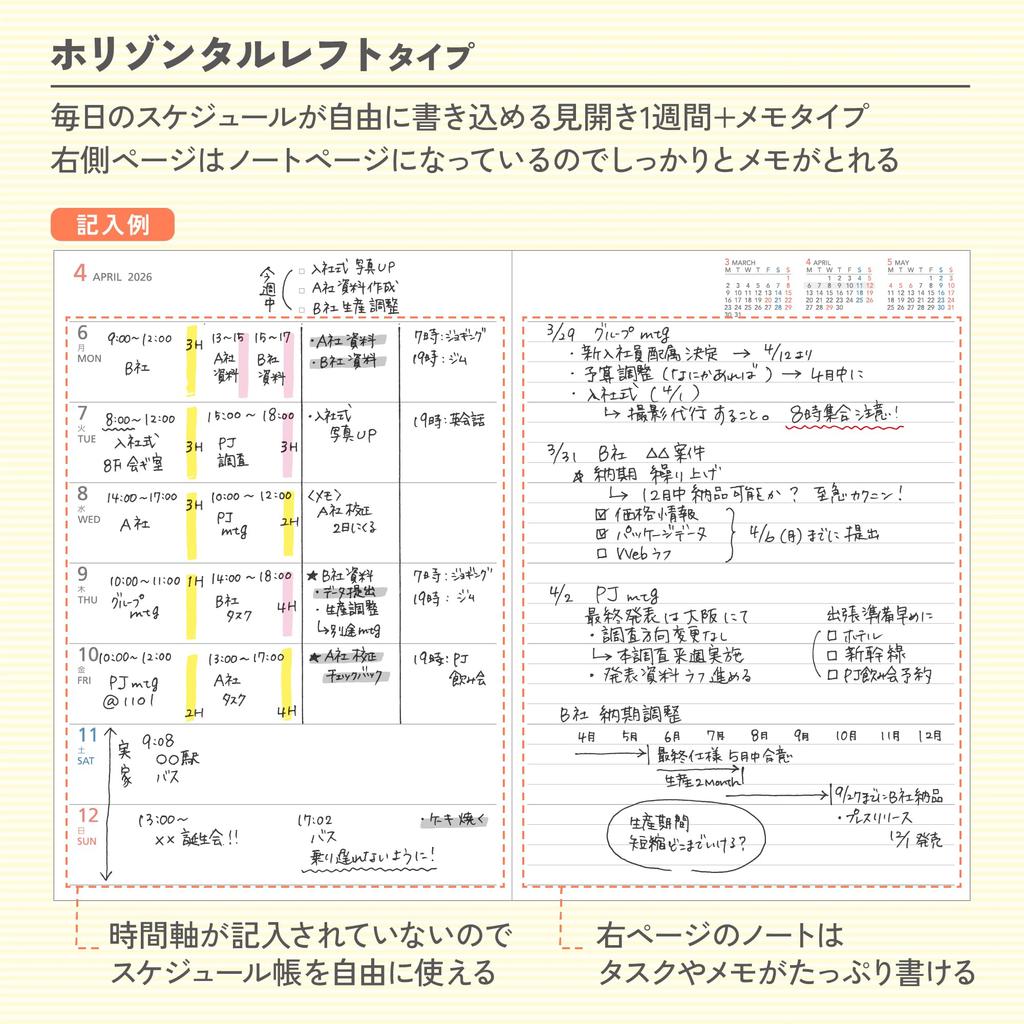 ホリゾンタルレフトタイプ
毎日のスケジュールが自由に書き込める見開き1週間+メモタイプ
右側ページはノートページになっているのでしっかりとメモがとれる
記入例
4 APRIL 2026
今週中
□ 入社式 写真UP
□ A社 資料作成
□ B社 生産調整
6 月 MON
9:00~12:00 3H
B社
13~15 15~17
A社 資料
B社 資料
・A社 資料
・B社 資料
7時:ジョギング
19時:ジム
7 火 TUE
8:00~12:00 3H
入社式
8F 会ギ室
15:00~18:00 3H
PJ
調査
・入社式
写真UP
19時:英会話
8 水 WED
14:00~17:00 3H
A社
10:00~12:00 2H
PJ
mtg
〈メモ〉
A社 校正
2日にくる
9 木 THU
10:00~11:00 1H
グループ
mtg
14:00~18:00 4H
B社
タスク
★B社 資料
・データ提出
・生産調整
↳別途mtg
7時:ジョギング
19時:ジム
10 金 FRI
10:00~12:00 2H
PJ mtg
@1101
13:00~17:00 4H
A社
タスク
★A社 校正
チェックバック
19時:PJ
飲み会
11 土 SAT
実家
9:08
○○駅
バス
12 日 SUN
13:00~
×× 誕生会!!
17:02
バス
乗り遅れないように!
・ケーキ焼く
3 MARCH
M T W T F S S
1
2 3 4 5 6 7 8
9 10 11 12 13 14 15
16 17 18 19 20 21 22
23 24 25 26 27 28 29
30 31
4 APRIL
M T W T F S S
1 2 3 4 5
6 7 8 9 10 11 12
13 14 15 16 17 18 19
20 21 22 23 24 25 26
27 28 29 30
5 MAY
M T W T F S S
1 2 3
4 5 6 7 8 9 10
11 12 13 14 15 16 17
18 19 20 21 22 23 24
25 26 27 28 29 30 31
3/29 グループ mtg
・新入社員配属決定 → 4/12より
・予算調整(なにかあれば) → 4月中に
・入社式 (4/1)
↳ 撮影代行すること。 8時集合注意!
3/31 B社 △△案件
★ 納期 繰り上げ
↳ 12月中納品可能か? 至急カクニン!
☑ 価格情報
☑ パッケージデータ
□ Webラフ
4/6(月)までに提出
4/2 PJ mtg
最終発表は大阪にて
・調査方向変更なし
↳ 本調査来週実施
・発表資料ラフ進める
出張準備早めに
□ ホテル
□ 新幹線
□ PJ飲み会予約
B社 納期調整
4月 5月 6月 7月 8月 9月 10月 11月 12月
最終仕様 5月中合意
生産2month
9/27までにB社納品
・プレスリリース
12/1 発売
生産期間
短縮どこまでいける?
時間軸が記入されていないので
スケジュール帳を自由に使える
右ページのノートは
タスクやメモがたっぷり書ける